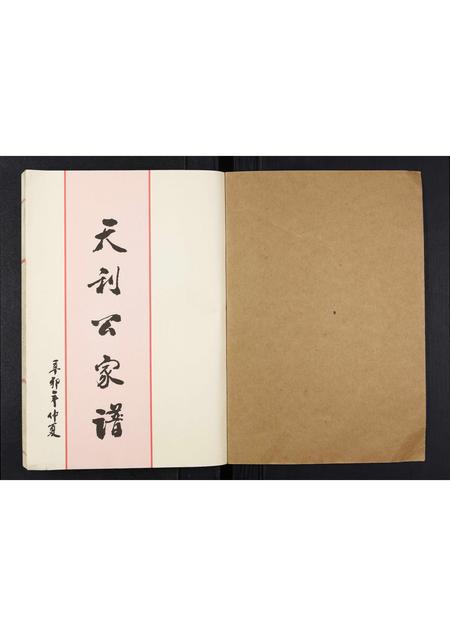 天利公家谱
辛卯年仲夏